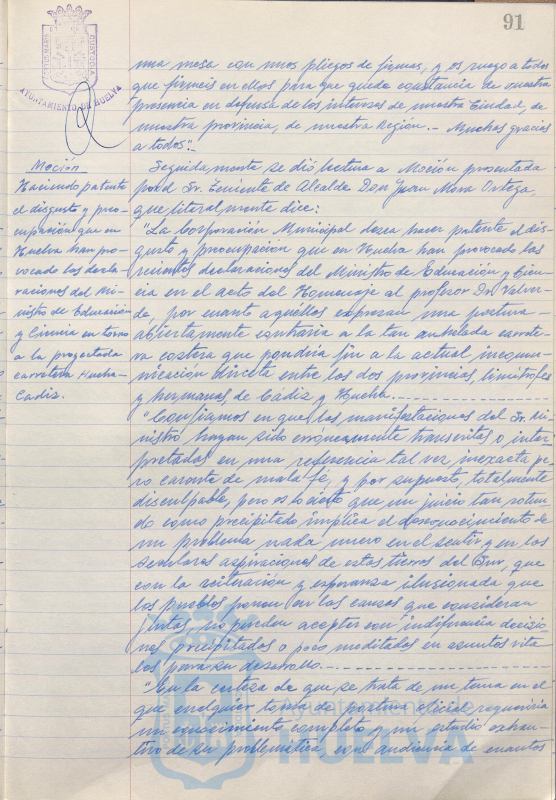 91
AYUNTAMIENTO DE HUELVA
una mesa con unos pliegos de firmas, y os ruego a todos
que firmeis en ellos para que quede constancia de vuestra
presencia en defensa de los intereses de nuestra Ciudad, de
nuestra provincia, de nuestra Región.- Muchas gracias
a todos".
Moción
Haciendo patente
el disgusto y preo-
cupación que en
Huelva han pro-
vocado las decla-
raciones del Mi-
nistro de Educación
y Ciencia en torno
a la proyectada
carretera Huelva-
Cadiz.
Seguidamente se dió lectura a Moción presentada
por el Sr. Teniente de Alcalde Don Juan Mora Ortega,
que literalmente dice:
"La Corporación Municipal desea hacer patente el dis-
gusto y preocupación que en Huelva han provocado las
recientes declaraciones del Ministro de Educación y Cien-
cia en el acto del Homenaje al profesor Dr. Valver-
de, por cuanto aquellas expresan una postura
abiertamente contraria a la tan anhelada carrete-
ra costera que pondría fin a la actual incomu-
nicación directa entre las dos provincias, limítrofes
y hermanas de Cádiz y Huelva.
"Confiamos en que las manifestaciones del Sr. Mi-
nistro hayan sido erróneamente transcritas o inter-
pretadas en una referencia tal vez inexacta pe-
ro carente de mala fé, y por supuesto, totalmente
disculpable, pero es lo cierto que un juicio tan rotun-
do como precipitado implica el desconocimiento de
un problema nada nuevo en el sentir y en las
seculares aspiraciones de estas tierras del Sur, que
con la reiteración y esperanza ilusionada que
los pueblos ponen en las causas que consideran
justas no pueden aceptar con indiferencia decisio
nes precipitadas o poco meditadas en asuntos vita
les para su desarrollo.
"En la certeza de que se trata de un tema en el
que cualquier toma de postura oficial requeriría
un conocimiento completo y un estudio exhaus-
tivo de su problemática con audiencia de cuantos
Ayuntamiento de
HUELVA